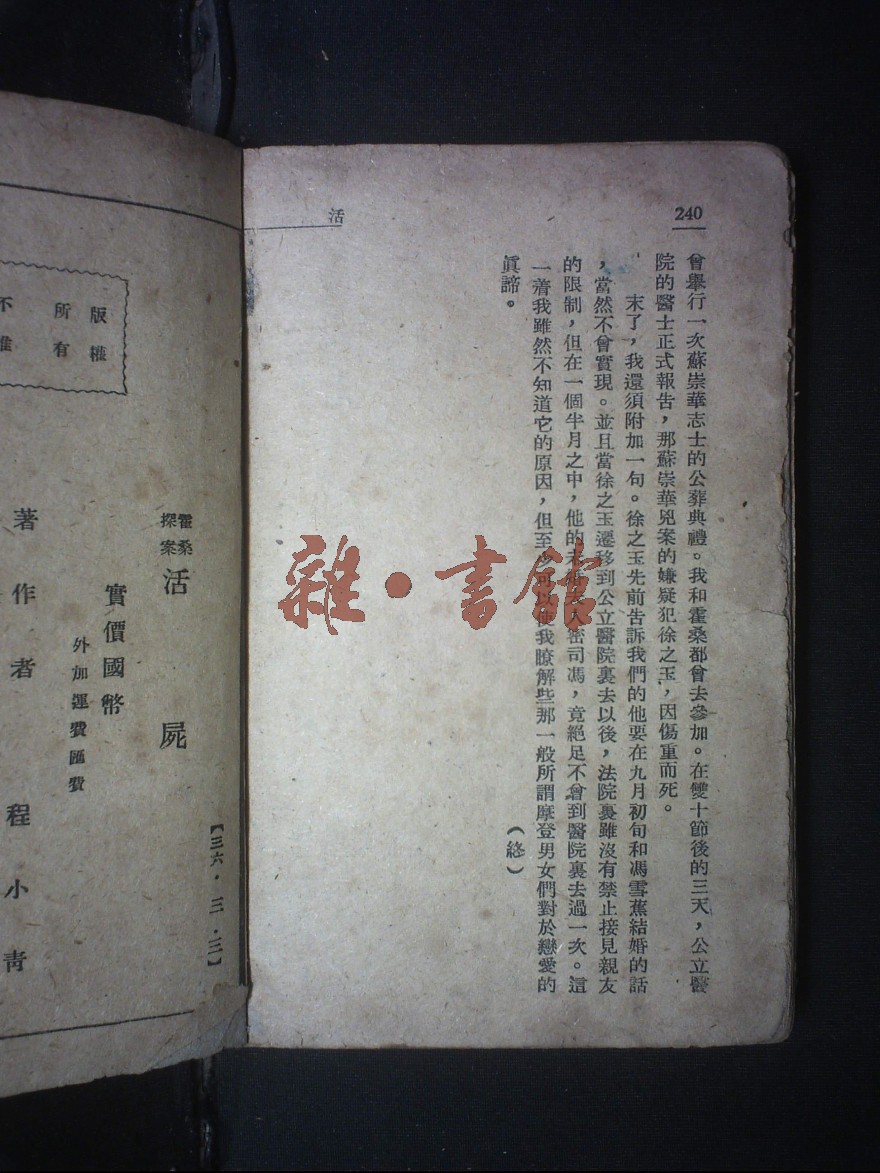 240
活
曾舉行一次蘇崇華志士的公葬典禮。我和霍桑都曾去參加。在雙十節後的三天，公立醫
院的醫士正式報告，那蘇崇華兇案的嫌疑犯徐之玉，因傷重而死。
末了，我還須附加一句。徐之玉先前告訴我們的他要在九月初旬和馮雪蕉結婚的話
，當然不曾實現。並且當徐之玉遷移到公立醫院裏去以後，法院裏雖沒有禁止接見親友
的限制，但在一個半月之中，他的未婚夫人密司馮，竟絕足不曾到醫院裏去過一次。這
一着我雖然不知道它的原因，但至少可以使我瞭解些那一般所謂摩登男女們對於戀愛的
眞諦。
（終）
雜·書館
【三六·三·三】
霍桑
探案
活屍
實價國幣
外加運費匯費
著作者 程小青
版權
所有
不